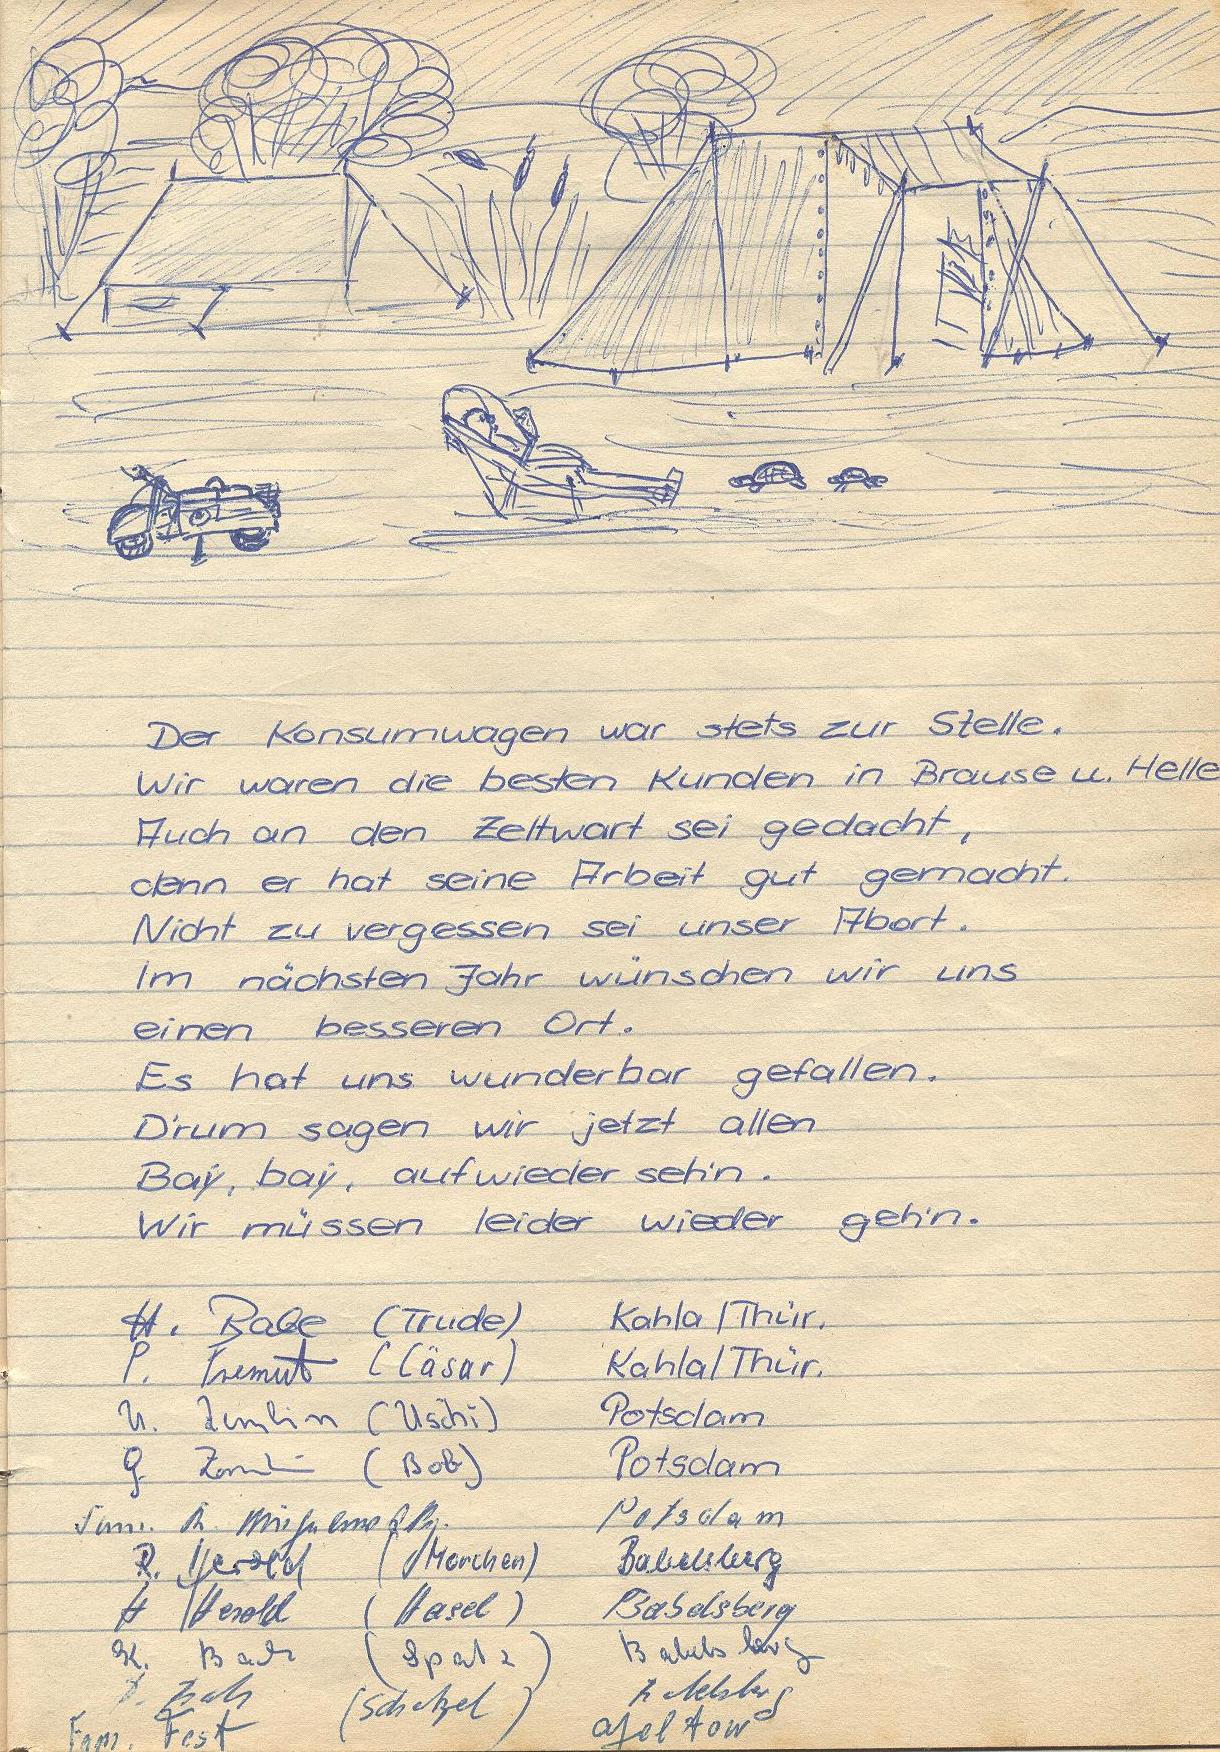 Der Konsumwagen war stets zur Stelle.
Wir waren die besten Kunden in Brause u. Helle
Auch an den Zeltwart sei gedacht,
denn er hat seine Arbeit gut gemacht.
Nicht zu vergessen sei unser Abort.
Im nächsten Jahr wünschen wir uns
einen besseren Ort.
Es hat uns wunderbar gefallen.
D'rum sagen wir jetzt allen
Baÿ, baÿ, aufwieder seh'n.
Wir müssen leider wieder geh'n.
H. Babe (Trude) Kahla/Thür.
P. (Cäsar) Kahla/Thür.
U. (Uschi) Potsdam
(Bob) Potsdam
Fam. Potsdam
R. Herold (Morchen) Babelsberg
H Herold (Hasel) Babelsberg
K. (Spatz) Babelsberg
(Schatzel) Babelsberg
Fam. Fest